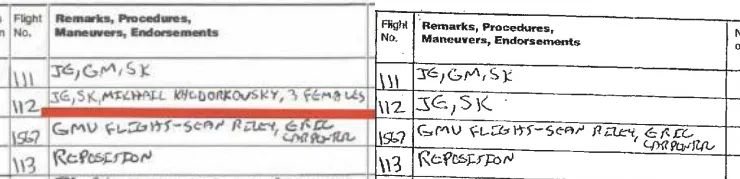 s Flight Remarks, Procedures,
n No. Maneuvers, Endorsements
111 JE, GM, SK
112 JE, SK, MIKHAIL KHODORKOVSKY, 3 FEMALES
1567 GMU FLIGHT-SEAN RILEY, ERIC
CARPENTER
113 REPOSITION
Flight Remarks, Procedures, N
No. Maneuvers, Endorsements o
111 JE, GM, SK
112 JE, SK
1567 GMU FLIGHT-SEAN RILEY, ERIC
CARPENTER
113 REPOSITION